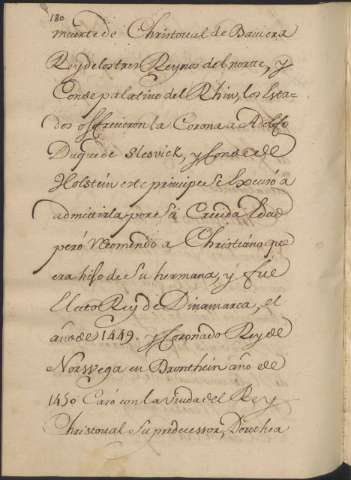 180
muerte de Christoual de Bauiera
Rey de los tres Reynos del norte, y
Conde palatino del Rhin, los Esta-
dos offrecieron la Corona a Adolfo
Duque de Slesvick, y Conde de
Holstein este principe se escusó a
admitirla por su Crecida Edad
peró recomendo a Christiano que
era hijo de su hermana, y fue
Electo Rey de Dinamarca, el
año de 1449. y Coronado Rey de
Norwega en Dronthein año de
1450 Casó con la viuda del Rey
Christoual su predecessor, Dorothea